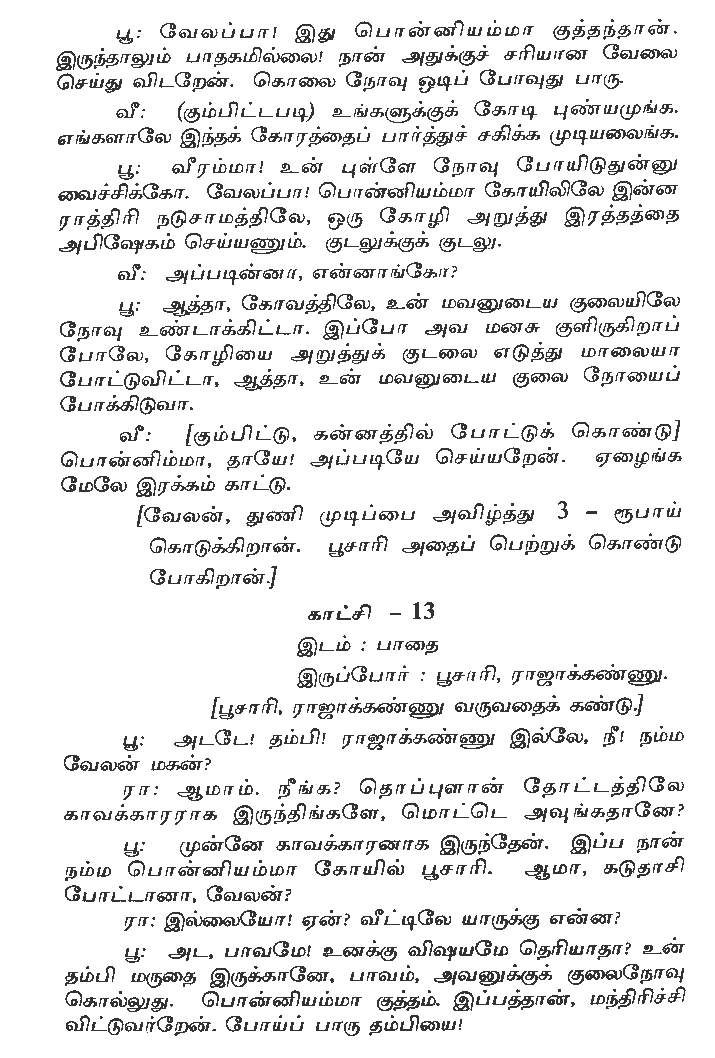 பூ: வேலப்பா! இது பொன்னியம்மா குத்தந்தான்.
இருந்தாலும் பாதகமில்லை! நான் அதுக்குச் சரியான வேலை
செய்து விடறேன். கொலை நோவு ஓடிப் போவுது பாரு.
வீ: (கும்பிட்டபடி) உங்களுக்குக் கோடி புண்யமுங்க.
எங்களாலே இந்தக் கோரத்தைப் பார்த்துச் சகிக்க முடியலைங்க.
பூ: வீரம்மா! உன் புள்ளே நோவு போயிடுதுன்னு
வைச்சிக்கோ. வேலப்பா! பொன்னியம்மா கோயிலிலே இன்ன
ராத்திரி நடுசாமத்திலே, ஒரு கோழி அறுத்து இரத்தத்தை
அபிஷேகம் செய்யணும். குடலுக்குக் குடலு.
வீ: அப்படின்னா, என்னாங்கோ?
பூ: ஆத்தா, கோவத்திலே, உன் மவனுடைய குலையிலே
நோவு உண்டாக்கிட்டா. இப்போ அவ மனசு குளிருகிறாப்
போலே, கோழியை அறுத்துக் குடலை எடுத்து மாலையா
போட்டுவிட்டா, ஆத்தா, உன் மவனுடைய குலை நோயைப்
போக்கிடுவா.
வீ: [கும்பிட்டு, கன்னத்தில் போட்டுக் கொண்டு]
பொன்னிம்மா, தாயே! அப்படியே செய்யறேன். ஏழைங்க
மேலே இரக்கம் காட்டு.
[வேலன், துணி முடிப்பை அவிழ்த்து 3 – ரூபாய்
கொடுக்கிறான். பூசாரி அதைப் பெற்றுக் கொண்டு
போகிறான்.]
காட்சி – 13
இடம் : பாதை
இருப்போர் : பூசாரி, ராஜாக்கண்ணு.
[பூசாரி, ராஜாக்கண்ணு வருவதைக் கண்டு.]
பூ: அடடே! தம்பி! ராஜாக்கண்ணு இல்லே, நீ! நம்ம
வேலன் மகன்?
ரா: ஆமாம். நீங்க? தொப்புளான் தோட்டத்திலே
காவக்காரராக இருந்திங்களே, மொட்டெ அவுங்கதானே?
பூ: முன்னே காவக்காரனாக இருந்தேன். இப்ப நான்
நம்ம பொன்னியம்மா கோயில் பூசாரி. ஆமா, கடுதாசி
போட்டானா, வேலன்?
ரா: இல்லையோ! ஏன்? வீட்டிலே யாருக்கு என்ன?
பூ: அட, பாவமே! உனக்கு விஷயமே தெரியாதா? உன்
தம்பி மருதை இருக்கானே, பாவம், அவனுக்குக் குலைநோவு
கொல்லுது. பொன்னியம்மா குத்தம். இப்பத்தான், மந்திரிச்சி
விட்டுவர்றேன். போய்ப் பாரு தம்பியை!